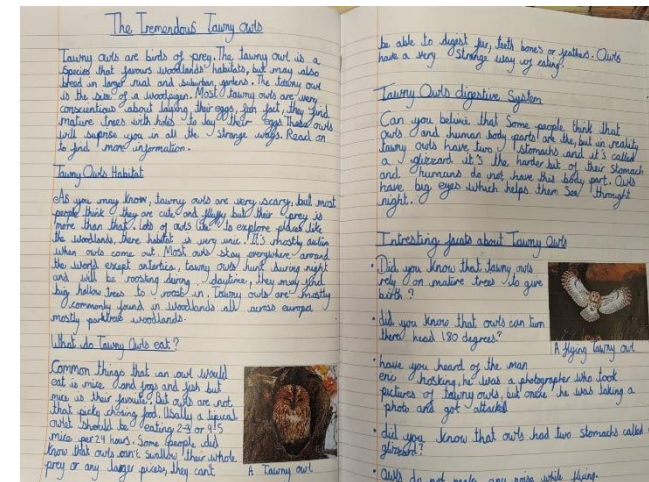 The Tremendous Tawny owls
Tawny owls are birds of prey. The tawny owl is a
species that favours woodlands habitats, but may also
breed in larger rural and suburban gardens. The tawny owl
is the size of a woodpigen. Most tawny owls are very
conscientious about laying their eggs, for fact, they find
mature trees with holes to lay their eggs These owls
will suprise you in all the strange ways. Read on
to find more information.
Tawny Owls Habitat
As you may know, tawny owls are very scary, but most
people think they are cute and fluffy but their prey is
more than that. Lots of owls like to explore places like
the woodlands, there habitat is very unic. It's mostly autumn
when owls come out. Most owls stay everywhere around
the world exept antartica, tawny owls hunt during night
and will be roosting during daytime, they may find
big hollow trees to roost in, Tawny owls are mostly
commonly found in woodlands all across europa
mostly woodlands.
What do Tawny Owls eat?
Common things that an owl would
eat is mice and frogs and fish but
mice is their favouite. But owls are not
that picky chosing food. Usally a tipical
owlet should be eating 2-3 or 4-5
mice per 24 hours. Some people did
know that owls can't swallow their whole
prey or any larger pieces, they cant
A Tawny owl
be able to digest fur, teeth bones or feathers. Owls
have a very strange way of eating.
Tawny Owls digestive System
Can you belivie that Some people think that
owls and human body parts are the, but in reality
tawny owls have two stomachs and it's called
a glizzard it's the harder bit of their stomach
and humans do not have this body part. Owls
have big eyes which helps them See throught
night.
Intresting facats about Tawny Owls
• Did you know that tawny owls
rely on mature trees to give
birth?
• did you know that owls can turn
there head 180 degrees?
A flying tawny owl
• have you heard of the man
eric hosking, he was a photographer who took
pictures of tawny owls, but once he was taking a
photo and got attacked
• did you know that owls had two stomachs called a
glizzard?
• Owls do not make any noise while flying.